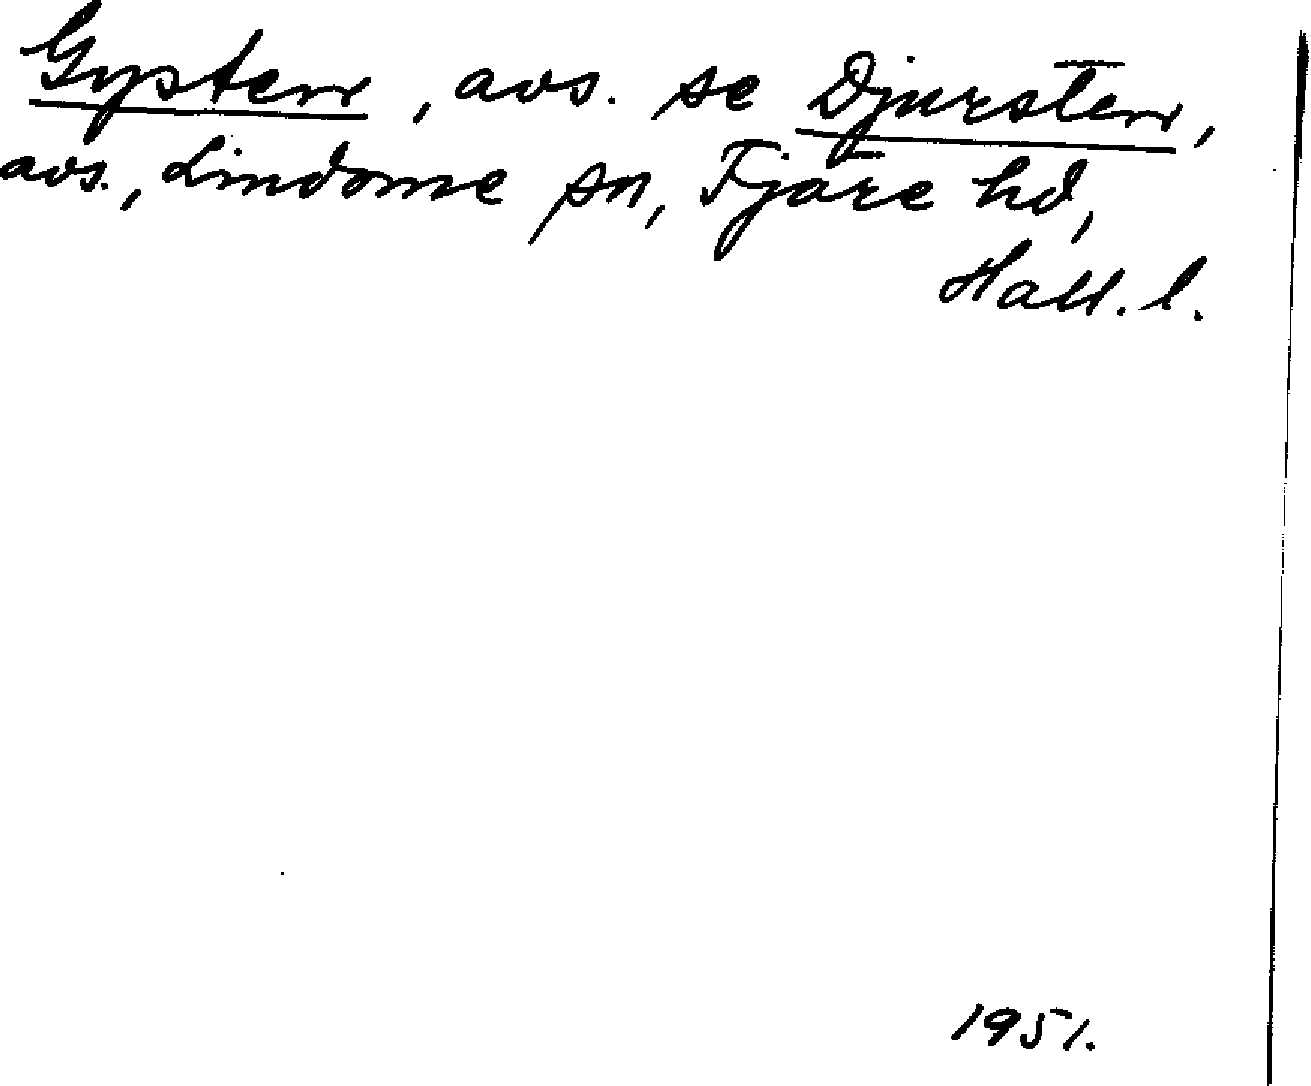 Gysten, avs. se Djursten,
avs., Lindome sn, Fjäre hd,
Hall. l.
1951.